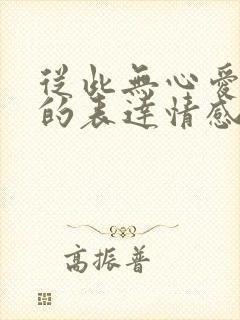 從此無心愛
的表達情感
高振普